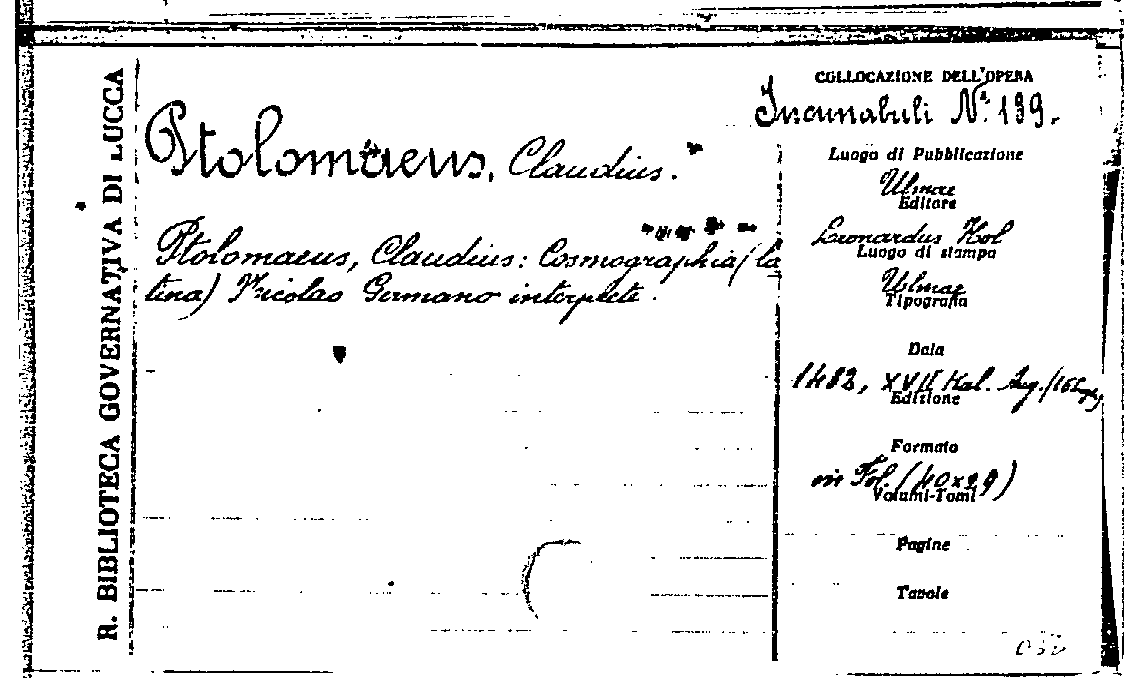 R. BIBLIOTECA GOVERNATIVA DI LUCCA
Ptolomaeus, Claudius.
Ptolomaeus, Claudius: Cosmographia (la
tina) Nicolao Germano interprete.
COLLOCAZIONE DELL'OPERA
Incunabuli N.° 199.
Luogo di Pubblicazione
Ulmae
Editore
Leonardus Hol
Luogo di stampa
Ulmae
Tipografia
Data
1482, XVII Kal. Aug. (16
Edizione
Formato
in Fol. (40x29)
Volumi-Tomi
Pagine
Tavole